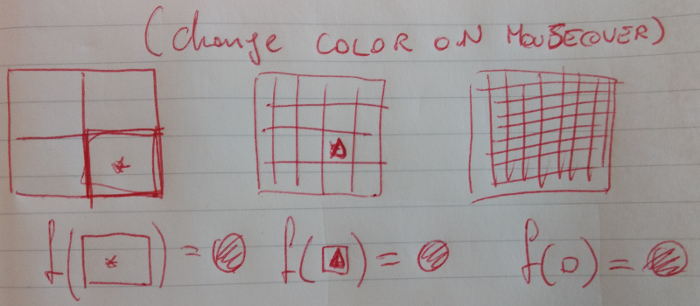 (change COLOR ON MOUSECOVER)
f( * ) = f( Δ ) = f( ) =